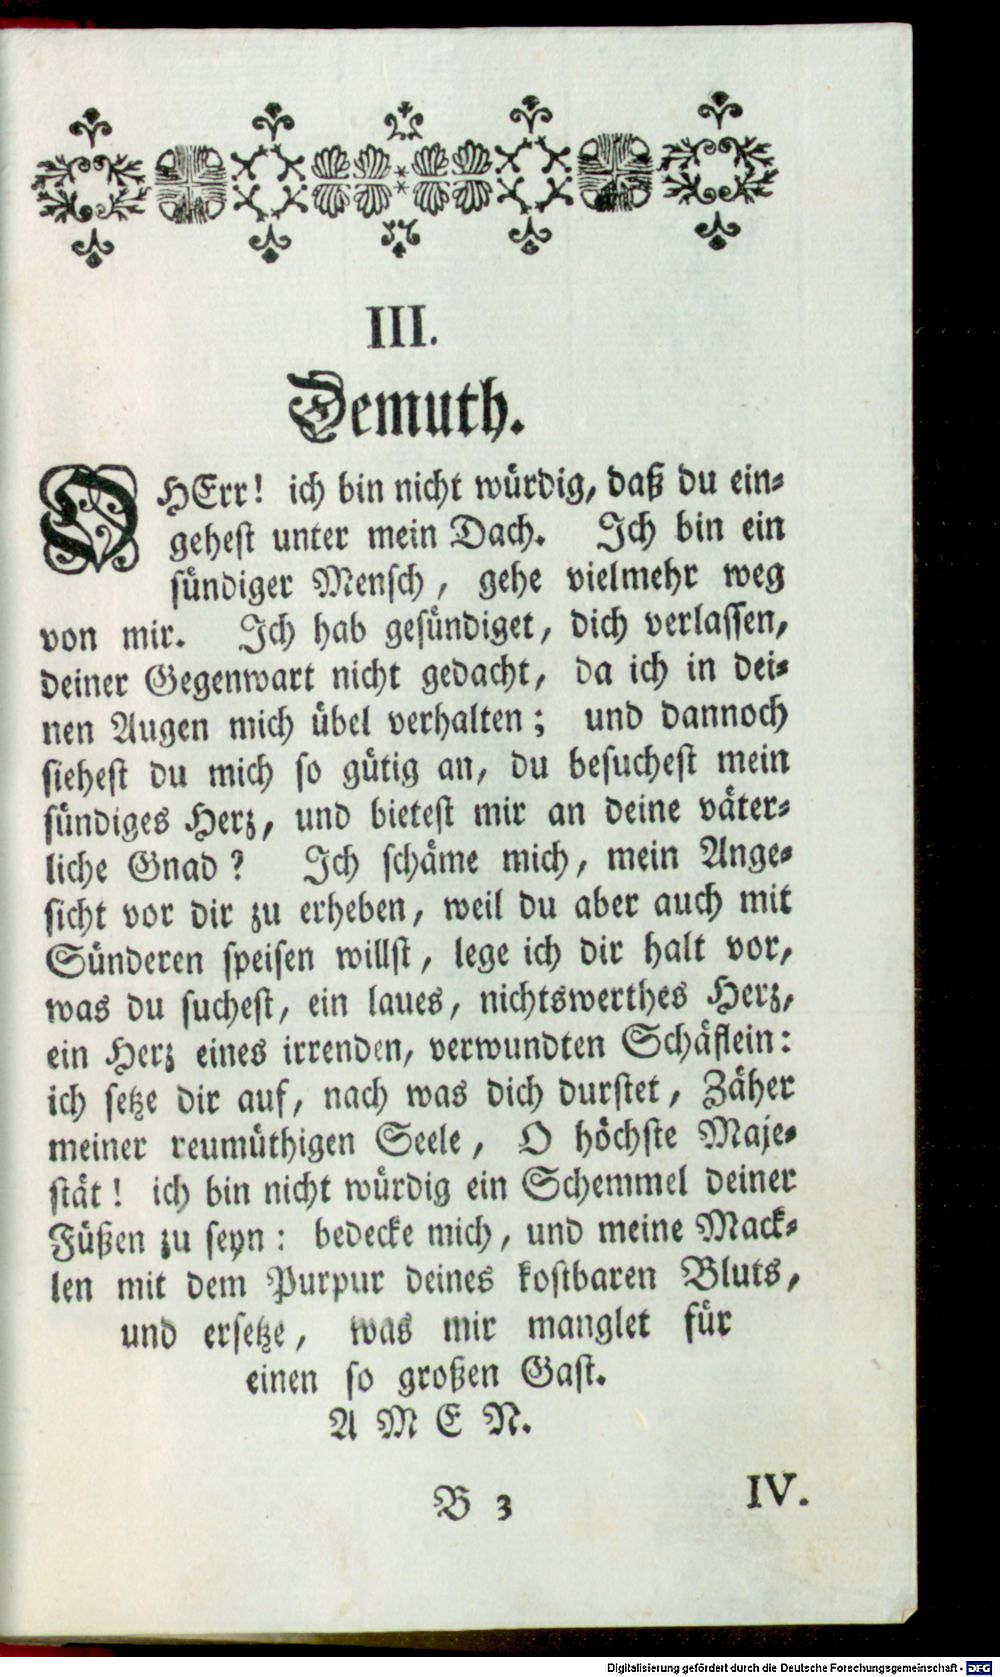 III.
Demuth.
O HErr! ich bin nicht würdig, daß du ein-
gehest unter mein Dach. Ich bin ein
sündiger Mensch, gehe vielmehr weg
von mir. Ich hab gesündiget, dich verlassen,
deiner Gegenwart nicht gedacht, da ich in dei-
nen Augen mich übel verhalten; und dannoch
siehest du mich so gütig an, du besuchest mein
sündiges Herz, und bietest mir an deine väter-
liche Gnad? Ich schäme mich, mein Ange-
sicht vor dir zu erheben, weil du aber auch mit
Sünderen speisen willst, lege ich dir halt vor,
was du suchest, ein laues, nichtswerthes Herz,
ein Herz eines irrenden, verwundten Schäflein:
ich setze dir auf, nach was dich durstet, Zäher
meiner reumüthigen Seele, O höchste Maje-
stät! ich bin nicht würdig ein Schemmel deiner
Füßen zu seyn: bedecke mich, und meine Mack-
len mit dem Purpur deines kostbaren Bluts,
und ersetze, was mir manglet für
einen so großen Gast.
A M E N.
B 3 IV.
Digitalisierung gefördert durch die Deutsche Forschungsgemeinschaft - DFG